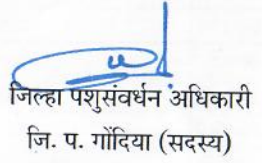 जिल्हा पशुसंवर्धन अधिकारी
जि. प. गोंदिया (सदस्य)